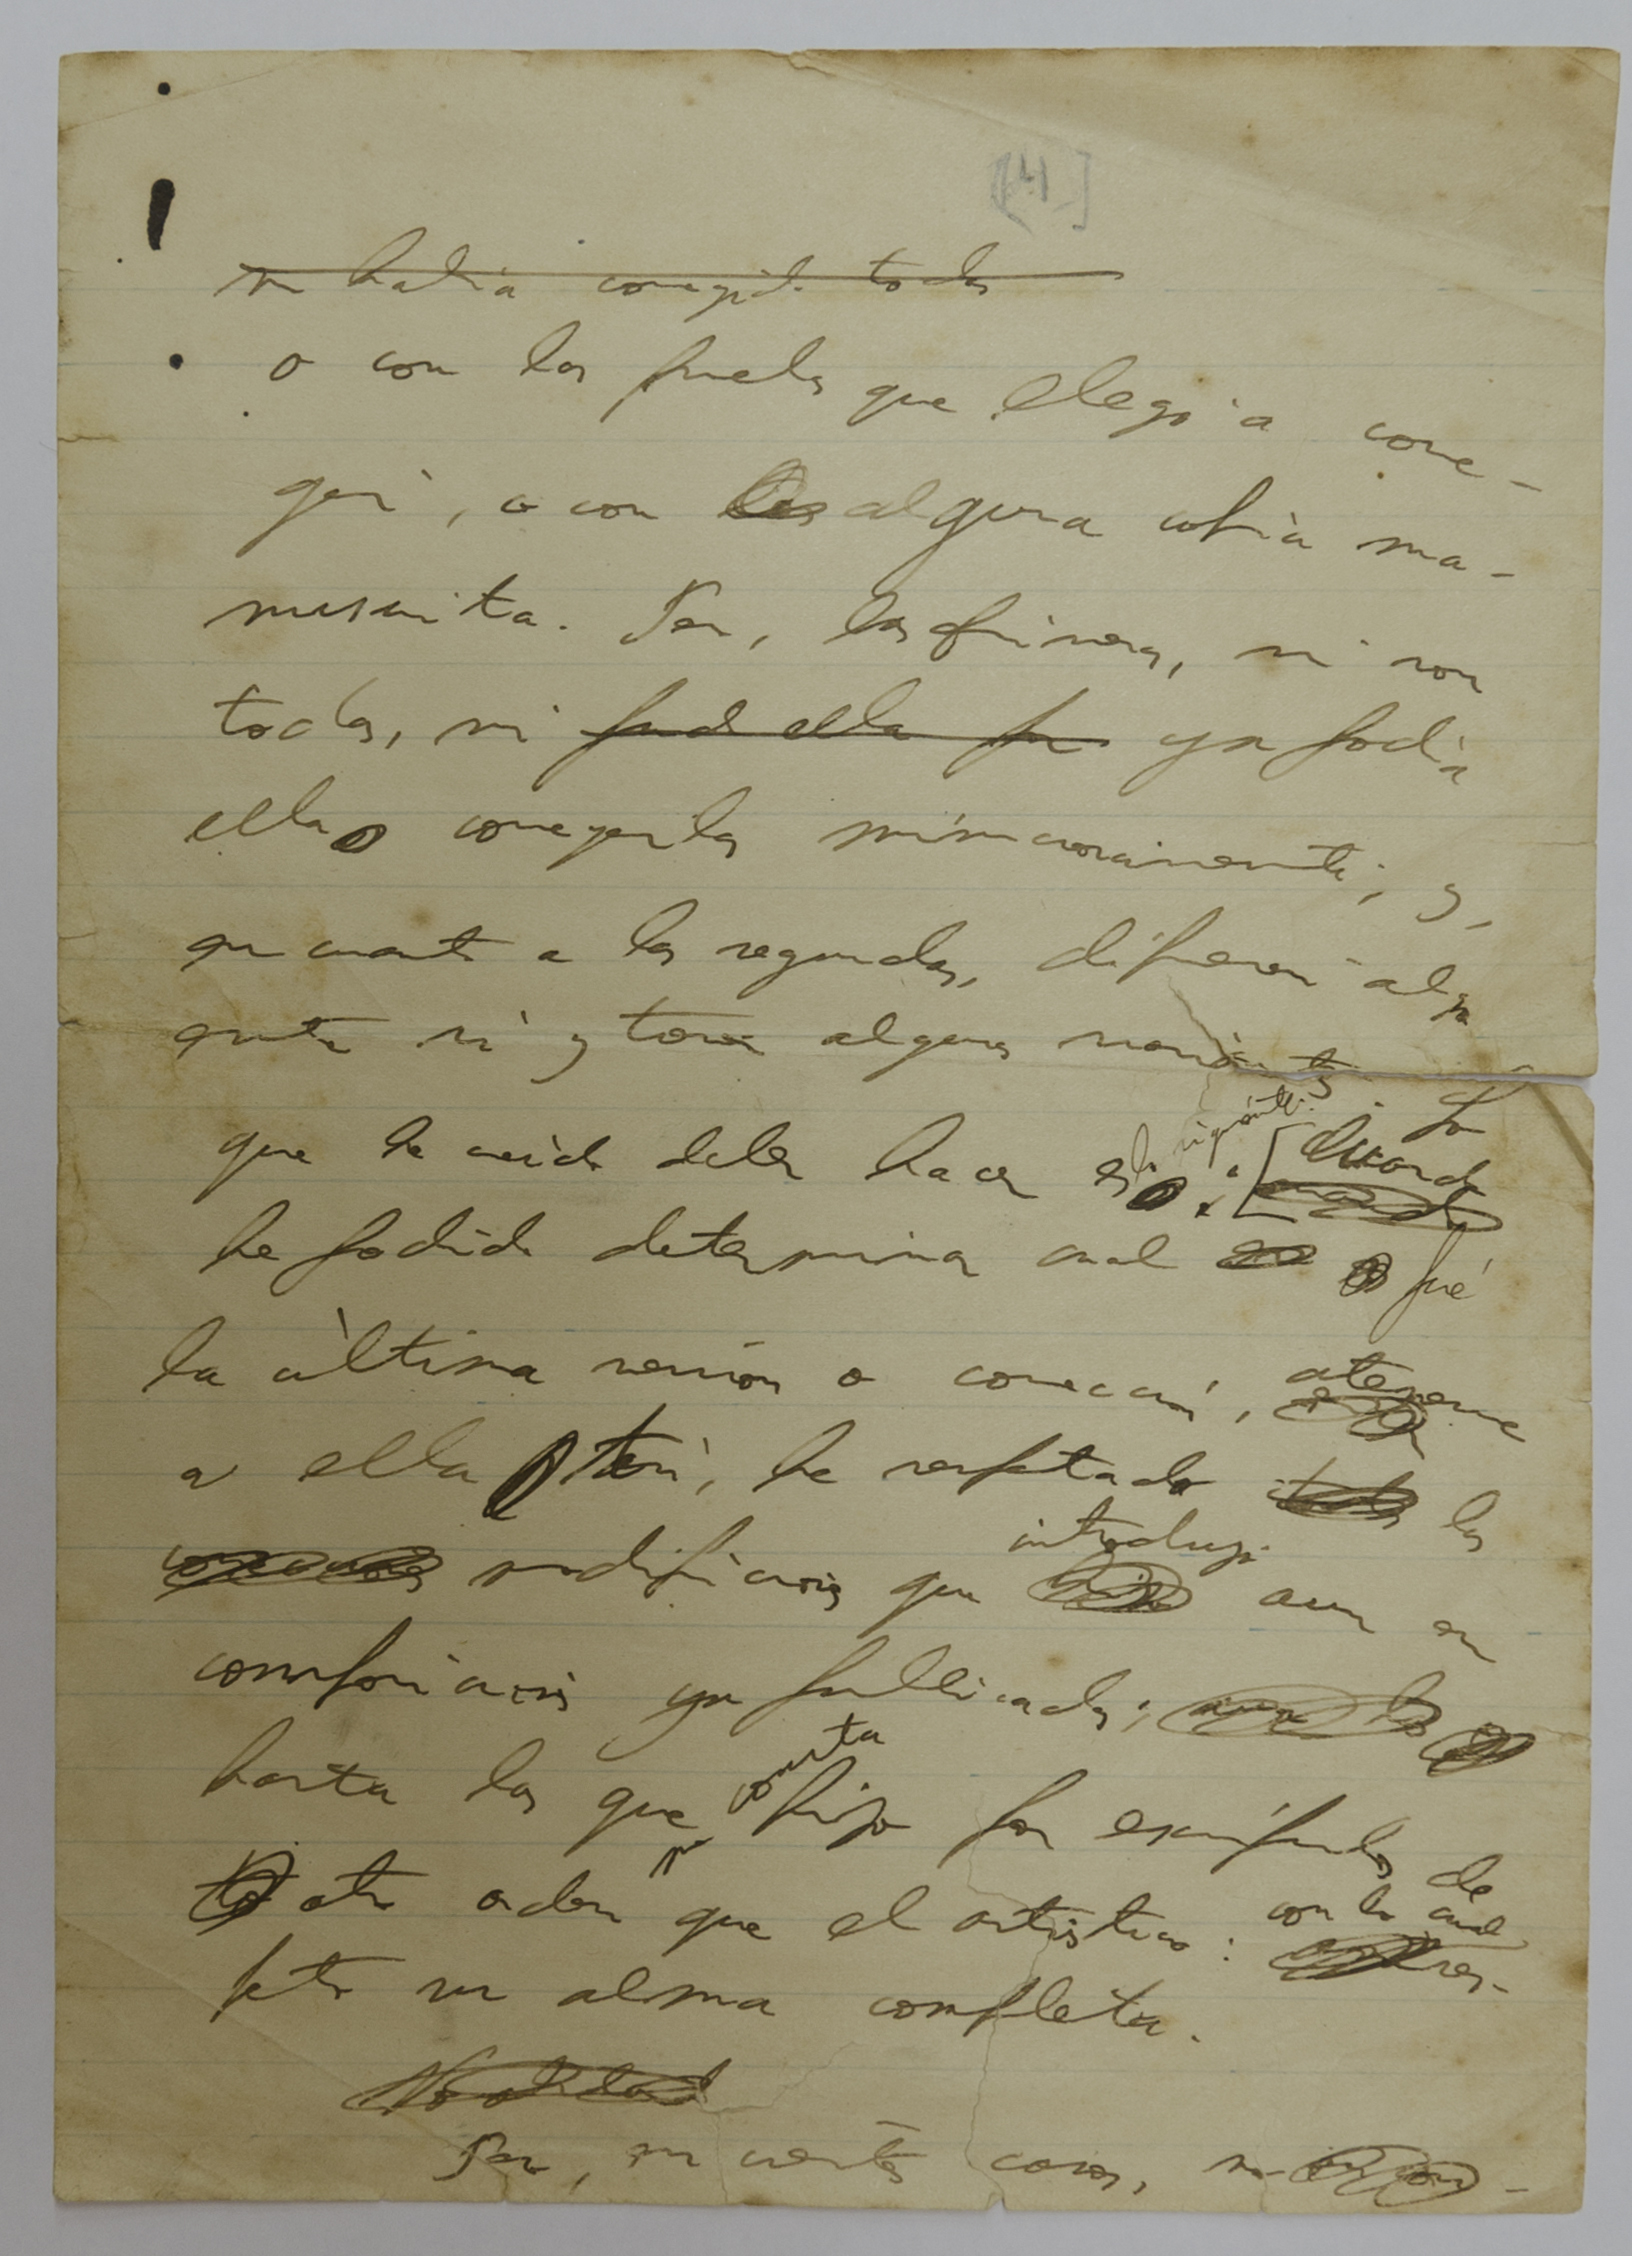 [4]
no había corregido todas
o con las pruebas que elegía corre-
gir, o con alguna copia ma-
nuscrita. Pero, las primeras, ni son
todas, ni pudo ella ya podía
ella corregirlas minuciosamente; y,
en cuanto a las segundas, difieren algu
entre sí y tienen algunas variantes. Lo
que he creído deber hacer es lo siguiente: [Cuando
he podido determinar cual fué
la última versión o corrección, atenerme
a ella. Así, he respetado las
modificaciones que introdujo aun en
composiciones ya publicadas;
hasta las que me consta hizo por escrúpulos de
otro orden que el artístico: con lo cual res-
peto su alma completa.
Pero, en ciertos casos, no